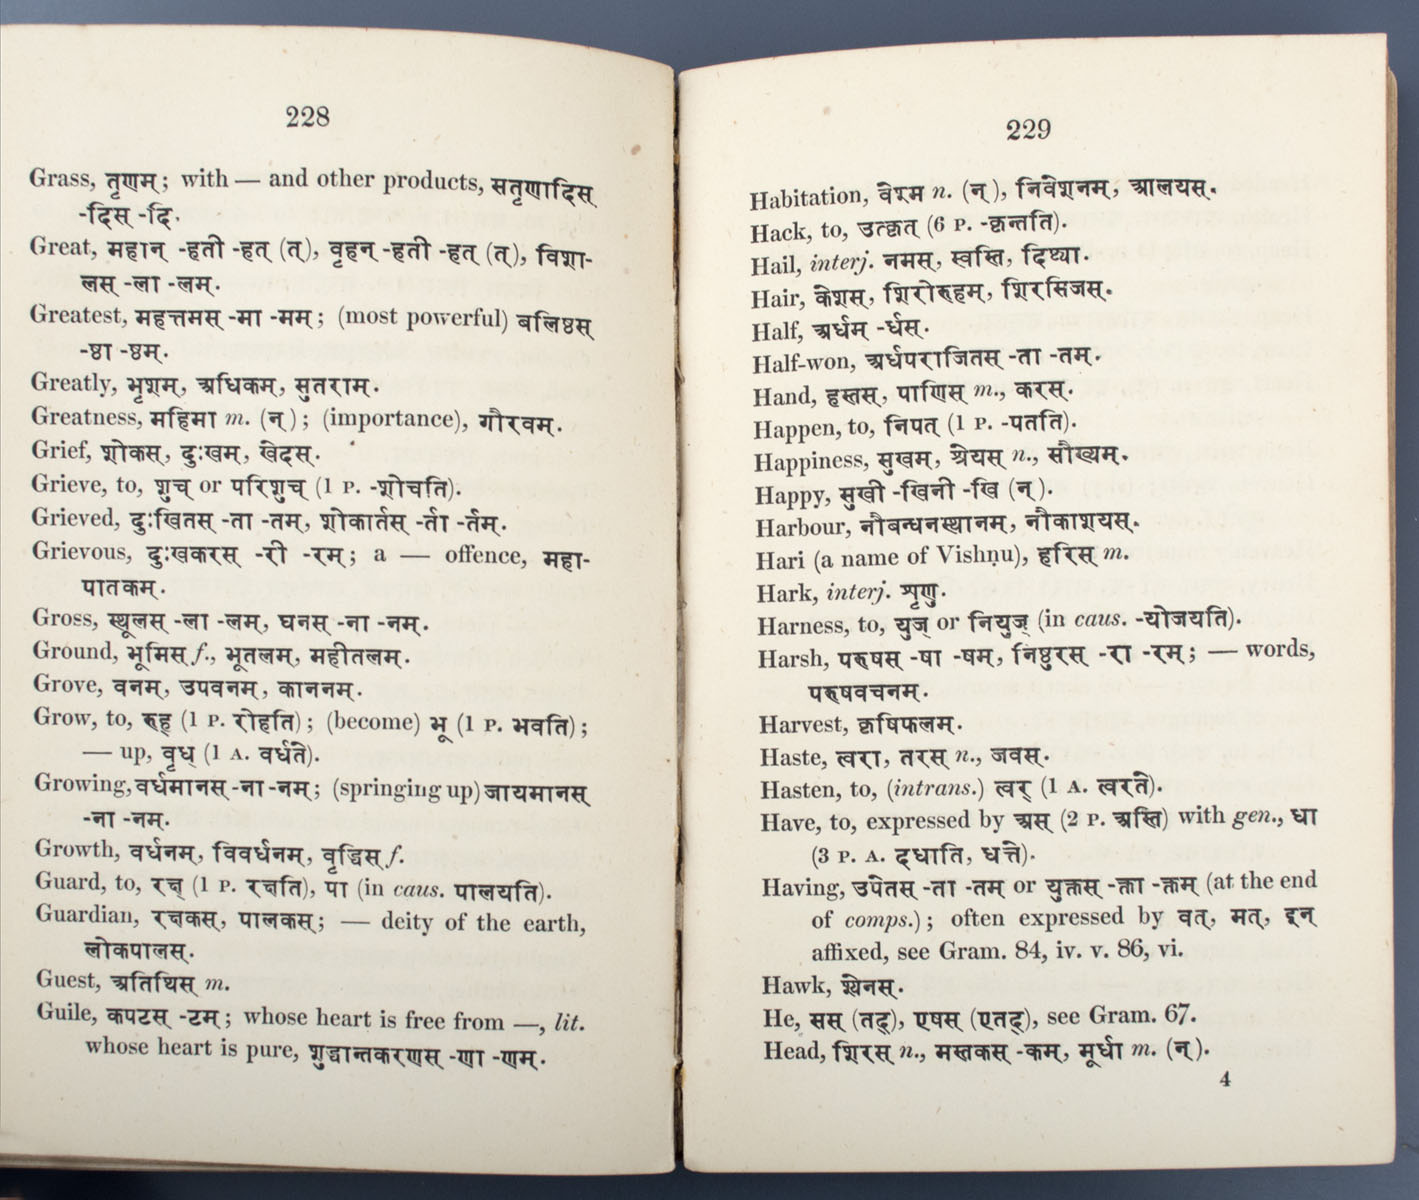 228
Grass, तृणम्; with — and other products, सतृणादिस्
-दिस् -दि.
Great, महान् -हती -हत् (त्), वृहन् -हती -हत् (त्), विशा-
लस् -ला -लम्.
Greatest, महत्तमस् -मा -मम्; (most powerful) बलिष्ठस्
-ष्ठा -ष्ठम्.
Greatly, भृशम्, अधिकम्, सुतराम्.
Greatness, महिमा m. (न्); (importance), गौरवम्.
Grief, शोकस्, दुःखम्, खेदस्.
Grieve, to, शुच् or परिशुच् (1 P. -शोचति).
Grieved, दुःखितस् -ता -तम्, शोकार्तस् -र्ता -र्तम्.
Grievous, दुःखकरस् -री -रम्; a — offence, महा-
पातकम्.
Gross, स्थूलस् -ला -लम्, घनस् -ना -नम्.
Ground, भूमिस् f., भूतलम्, महीतलम्.
Grove, वनम्, उपवनम्, काननम्.
Grow, to, रुह् (1 P. रोहति); (become) भू (1 P. भवति);
— up, वृध् (1 A. वर्धते).
Growing, वर्धमानस् -ना -नम्; (springing up) जायमानस्
-ना -नम्.
Growth, वर्धनम्, विवर्धनम्, वृद्धिस् f.
Guard, to, रक्ष् (1 P. रक्षति), पा (in caus. पालयति).
Guardian, रक्षकस्, पालकस्; — deity of the earth,
लोकपालस्.
Guest, अतिथिस् m.
Guile, कपटस् -टम्; whose heart is free from —, lit.
whose heart is pure, शुद्धान्तकरणस् -णा -णम्.
229
Habitation, वेश्म n. (न्), निवेशनम्, आलयस्.
Hack, to, उत्कृत् (6 P. -कृन्तति).
Hail, interj. नमस्, स्वस्ति, दिष्ट्या.
Hair, केशस्, शिरोरुहम्, शिरसिजस्.
Half, अर्धम् -र्धस्.
Half-won, अर्धपराजितस् -ता -तम्.
Hand, हस्तस्, पाणिस् m., करस्.
Happen, to, निपत् (1 P. -पतति).
Happiness, सुखम्, श्रेयस् n., सौख्यम्.
Happy, सुखी -खिनी -खि (न्).
Harbour, नौबन्धनस्थानम्, नौकाशयस्.
Hari (a name of Vishṇu), हरिस् m.
Hark, interj. शृणु.
Harness, to, युज् or नियुज् (in caus. -योजयति).
Harsh, परुषस् -षा -षम्, निष्ठुरस् -रा -रम्; — words,
परुषवचनम्.
Harvest, कृषिफलम्.
Haste, त्वरा, तरस् n., जवस्.
Hasten, to, (intrans.) त्वर् (1 A. त्वरते).
Have, to, expressed by अस् (2 P. अस्ति) with gen., धा
(3 P. A. दधाति, धत्ते).
Having, उपेतस् -ता -तम् or युक्तस् -क्ता -क्तम् (at the end
of comps.); often expressed by वत्, मत्, इन्
affixed, see Gram. 84, iv. v. 86, vi.
Hawk, श्येनस्.
He, सस् (तद्), एषस् (एतद्), see Gram. 67.
Head, शिरस् n., मस्तकस् -कम्, मूर्धा m. (न्).
4